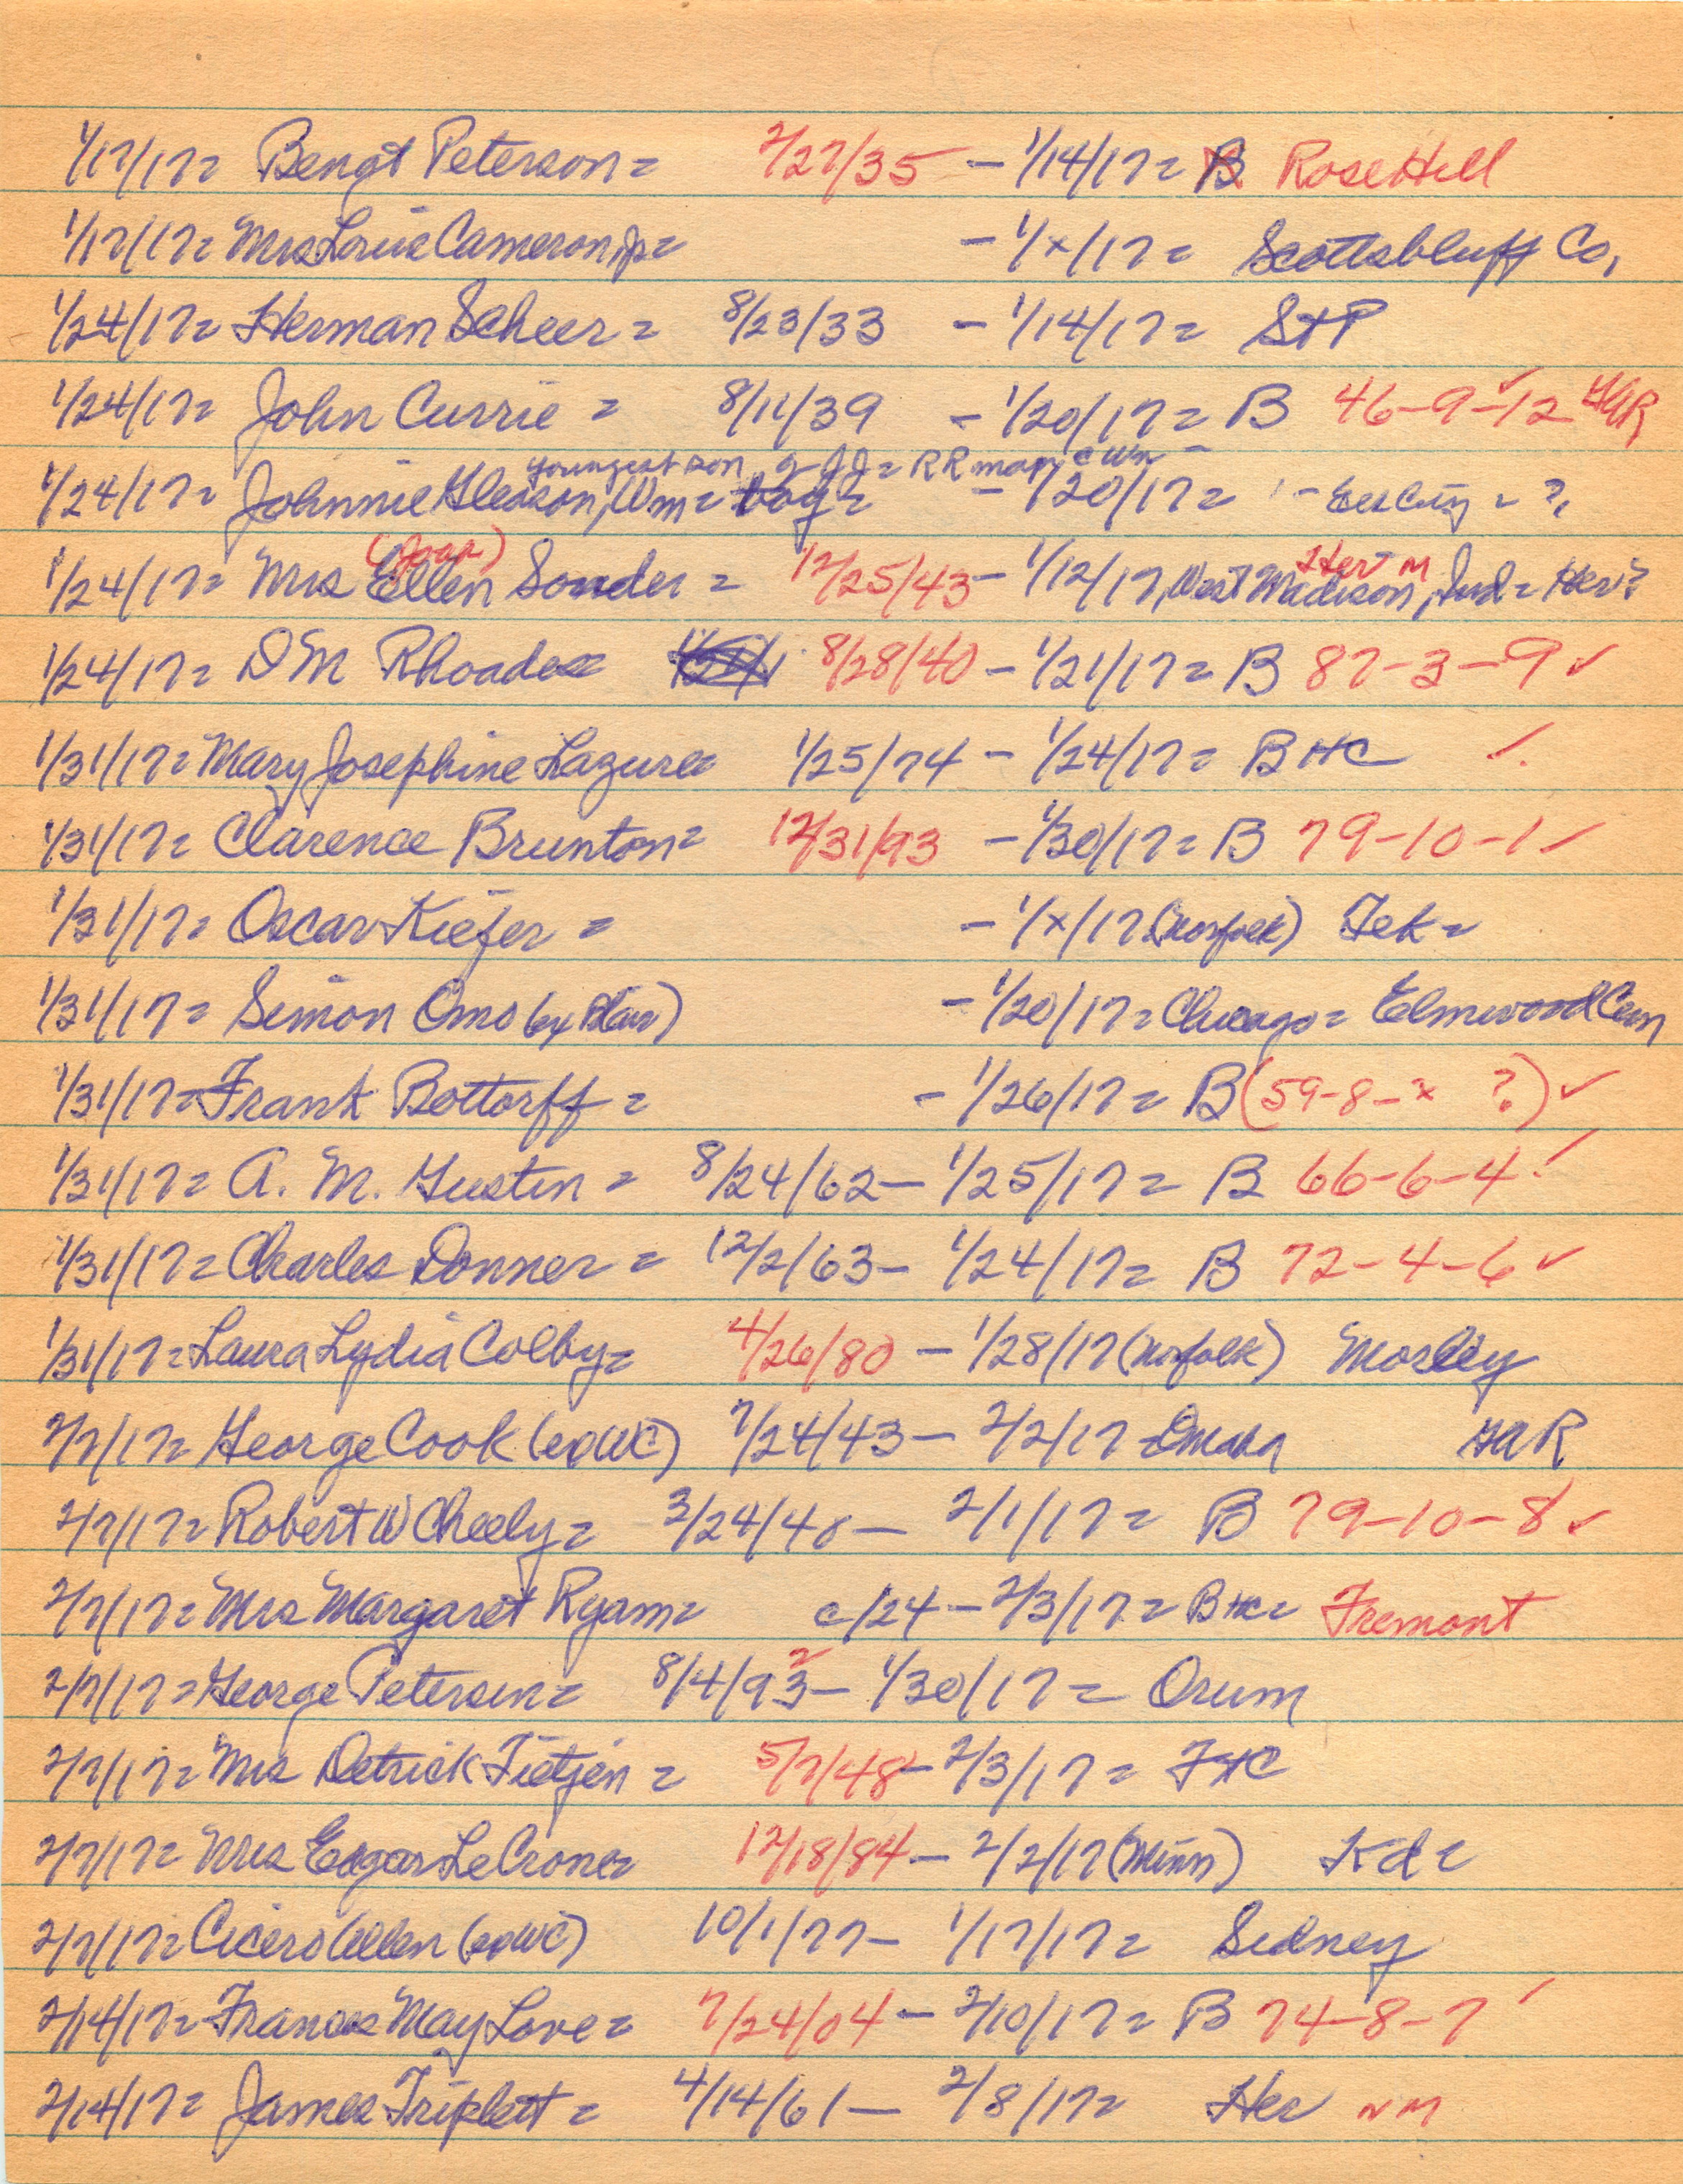 1/17/17= Bengt Peterson= 2/27/35 - 1/14/17= B RoseHill
1/17/17= Mrs Louie Cameron, Jr= - 1/x/17= Scottsbluff Co,
1/24/17= Herman Scheer= 8/23/33 - 1/14/17= StP
1/24/17= John Currie = 8/11/39 - 1/20/17= B 46-9-12 ✓ GAR
youngest son of JJ= RR man, c Wm -
1/24/17= Johnnie Gleason, Wm= boy= - 1/20/17= - City = ?
(Joan) Her M
1/24/17= Mrs Ellen Sonder = 12/25/43 - 1/12/17, West Madison, Ind= Her?
1/24/17= DM Rhoades 8/28/40 - 1/21/17= B 87-3-9 ✓
1/31/17= Mary Josephine Lazure= 1/25/74 - 1/24/17= BHC ✓
1/31/17= Clarence Brunton= 12/31/93 - 1/30/17= B 79-10-1 ✓
1/31/17= Oscar Kiefer = - 1/x/17 (Norfolk) Tek=
1/31/17= Simon Oms (ex Blair) - 1/20/17= Chicago= Elmwood Cem
1/31/17= Frank Bottorff = - 1/26/17= B (59-8-x ?) ✓
1/31/17= A. M. Gustin = 8/24/62 - 1/25/17= B 66-6-4 ✓
1/31/17= Charles Donner = 12/2/63 - 1/24/17= B 72-4-6 ✓
1/31/17= Laura Lydia Colby= 4/26/80 - 1/28/17 (Norfolk) Morley
2/7/17= George Cook (exWC) 7/24/43 - 2/2/17 Omaha GAR
2/7/17= Robert W Cheely= 3/24/40 - 2/1/17= B 79-10-8 ✓
2/7/17= Mrs Margaret Ryan= c/24 - 2/3/17= BHC= Fremont
2/7/17= George Petersen= 8/4/93 2 - 1/30/17= Orum
2/7/17= Mrs Detrick Tietjen = 5/7/48 - 2/3/17= FHC
2/7/17= Mrs Edgar LeCrone= 12/18/84 - 2/2/17 (Minn) Kd=
2/7/17= Cicero Allen (exWC) 10/1/77 - 1/17/17= Sidney
2/14/17= Frances May Love= 7/24/04 - 2/10/17= B 74-8-7 ✓
2/14/17= James Triplett = 4/14/61 - 2/8/17= Her NM